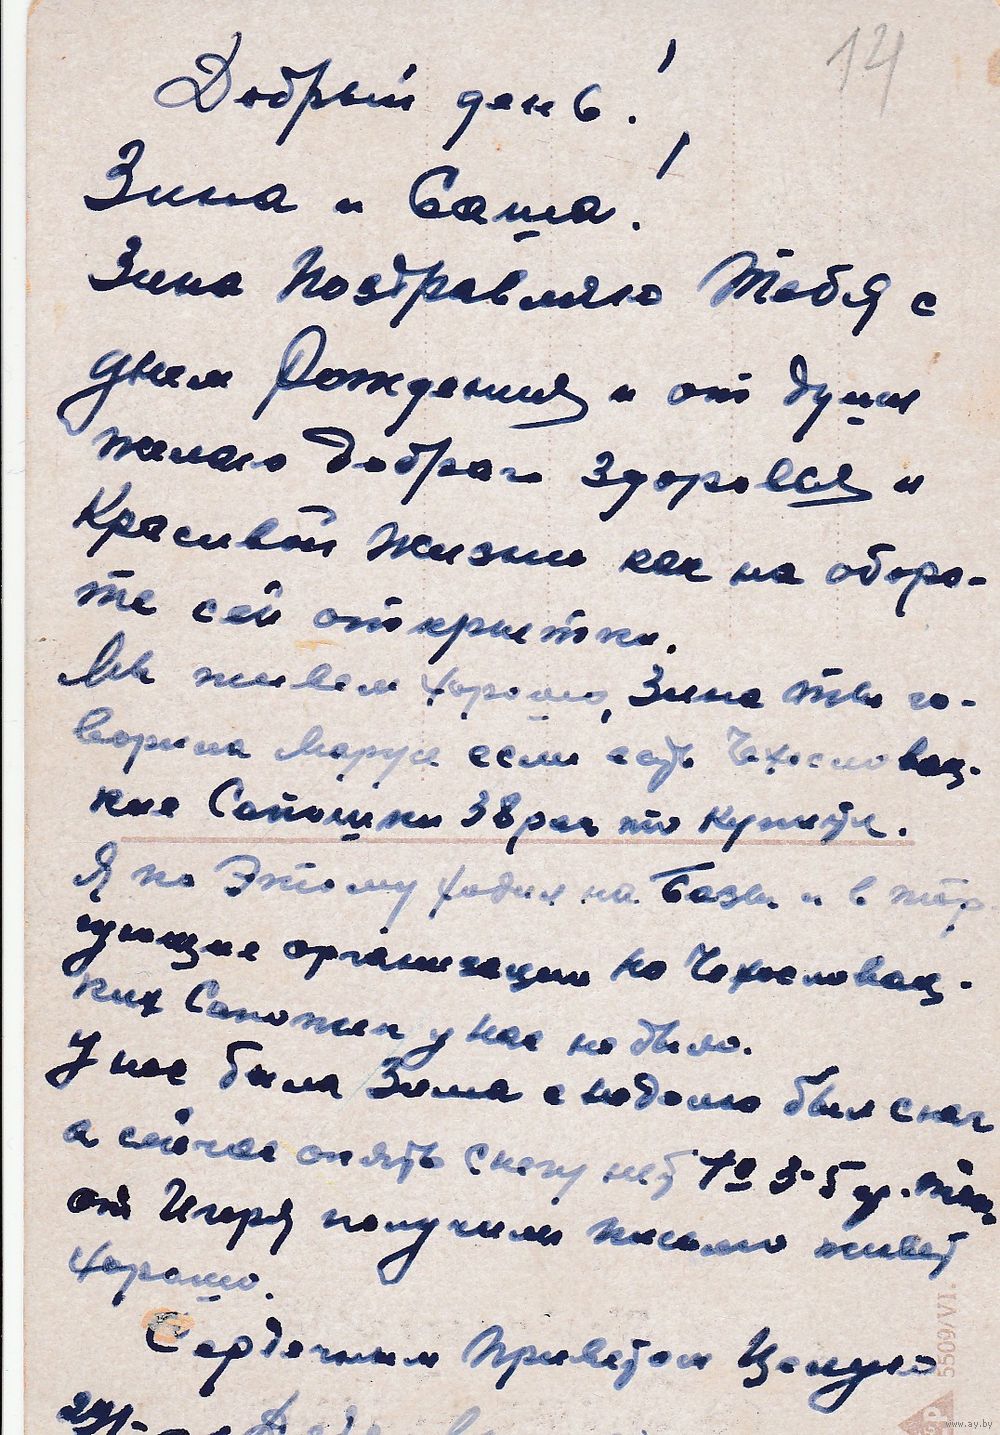 14
Добрый день!
Зина и Саша!
Зина Поздравляю Тебя с
днем Рождения и от души
желаю доброго здоровья и
Красивой жизни как на оборо-
те сей открытки.
Мы живем хорошо, Зина ты го-
ворила Марусе если есть Чехословац-
кие Сапошки 38 раз то купите.
Я по Этому ходил на Базы и в тор-
гующие организации но Чехословац-
ких Сапожек у нас не было.
У нас была Зима с неделю был снег
а сейчас опять снегу нет 1º 3-5 гр. теп.
от Игоря получили письмо живет
хорошо.
Сердечным Приветом Целую
5509/VI.
www.ay.by